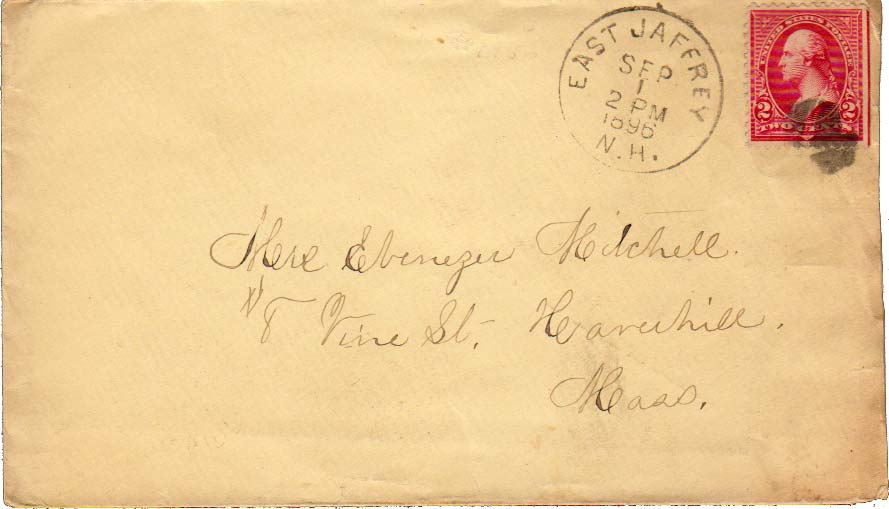 EAST JAFFREY
SEP
1
2 PM
1896
N.H.
UNITED STATES POSTAGE
2 2
TWO CENTS
Ebenezer Mitchell.
8 Vine St. Haverhill.
Mass.